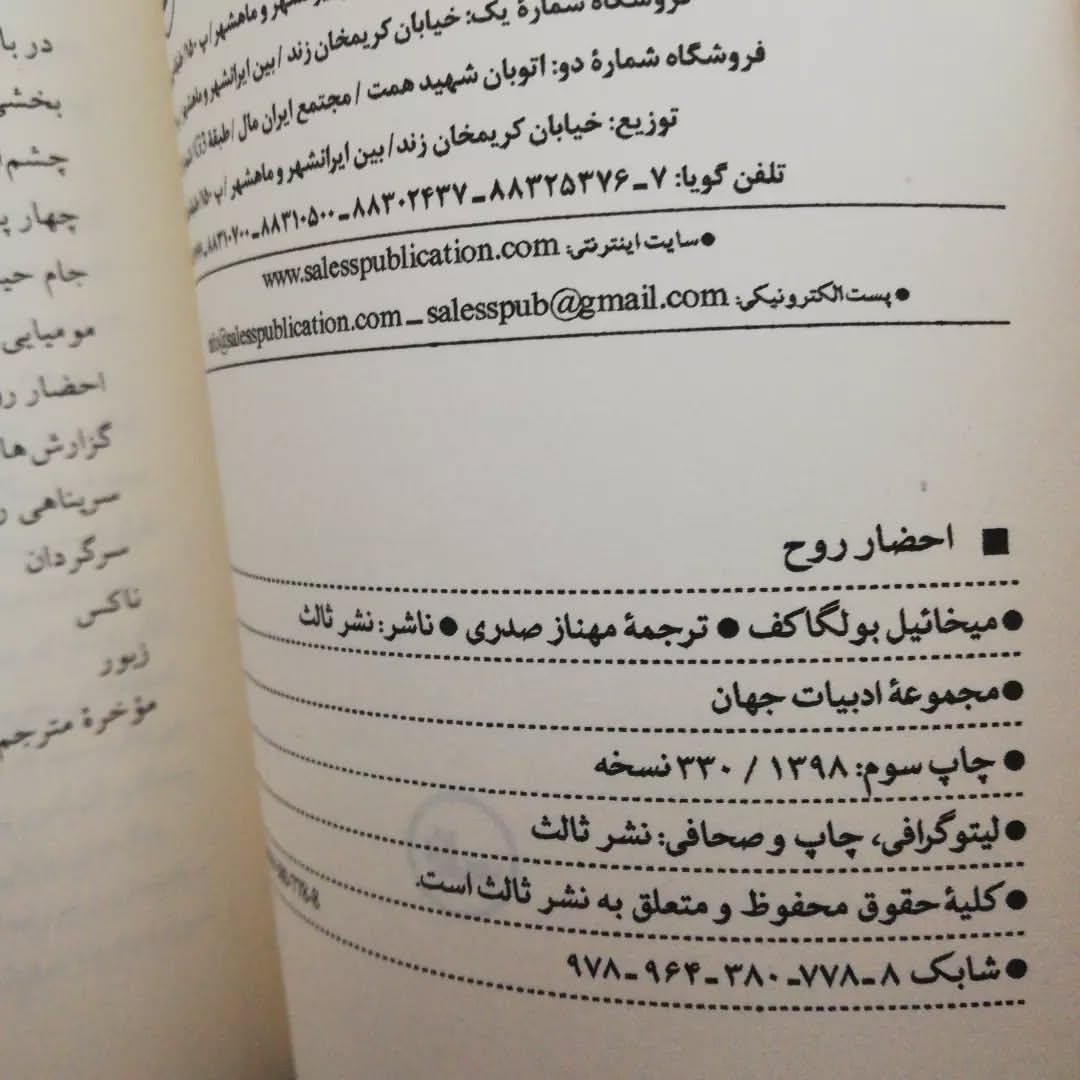 فروشگاه شمارهٔ یک: خیابان کریمخان زند / بین ایرانشهر و ماهشهر
فروشگاه شمارهٔ دو: اتوبان شهید همت / مجتمع ایران مال / طبقهٔ G3
توزیع: خیابان کریمخان زند / بین ایرانشهر و ماهشهر / پ ۱۵۰
تلفن گویا: ۷ـ۸۸۳۲۵۳۷۶ـ۸۸۳۰۲۴۳۷ـ۸۸۳۱۰۵۰۰ـ۸۸۳۱۰۷۰۰
●سایت اینترنتی: www.salesspublication.com
●پست الکترونیکی: salesspub@gmail.com ـ info@salesspublication.com
■ احضار روح
●میخائیل بولگاکف ● ترجمهٔ مهناز صدری ● ناشر: نشر ثالث
●مجموعهٔ ادبیات جهان
● چاپ سوم: ۱۳۹۸ / ۳۳۰ نسخه
●لیتوگرافی، چاپ و صحافی: نشر ثالث
●کلیهٔ حقوق محفوظ و متعلق به نشر ثالث است.
●شابک ۸ـ۷۷۸ـ۳۸۰ـ۹۶۴ـ۹۷۸
در با
بخشی
چشم
چهار
جام
مومیایی
احضار
گزارش‌ها
سرپناهی
سرگردان
ناکس
زیور
مؤخرهٔ مترجم